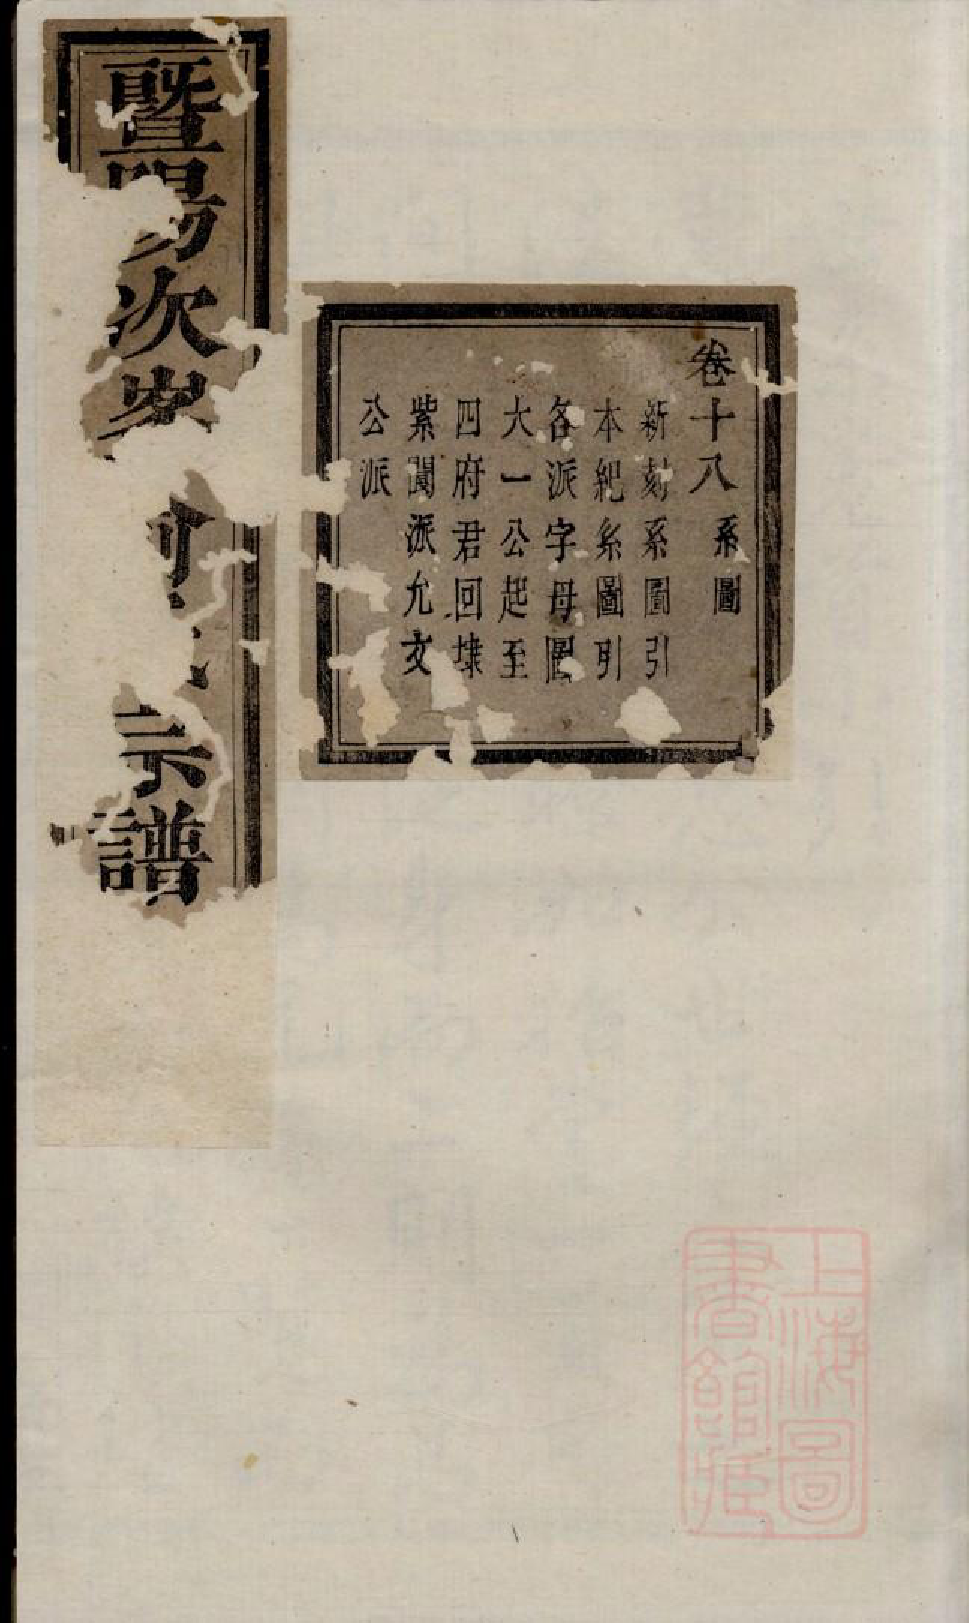 暨陽次峯何氏宗譜
卷十八 系圖
新刻系圖引
本紀系圖引
各派字母圖
大一公起至
四府君回埭
紫閬派允文
公派
上海圖
書館藏